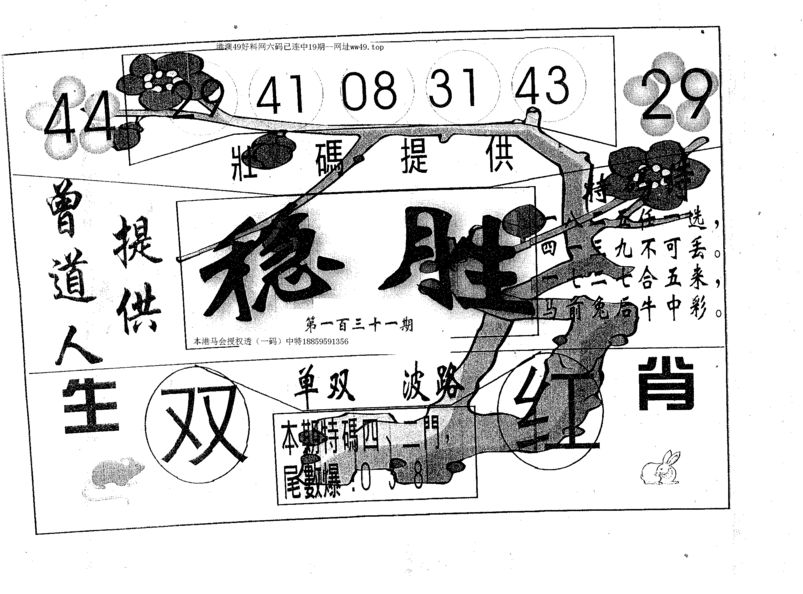 港澳49好料网六码已连中19期--网址ww49.top
44 29 41 08 31 43 29
壯碼提供
曾道人
提供
稳胜
第一百三十一期
本港马会授权透（一码）中特18859591356
四一三九不可丢。
一七二七合五来，
马前兔后牛中彩。
生
双
单双 波路
红
肖
本期特碼四、二門，
尾數爆:0 3 8